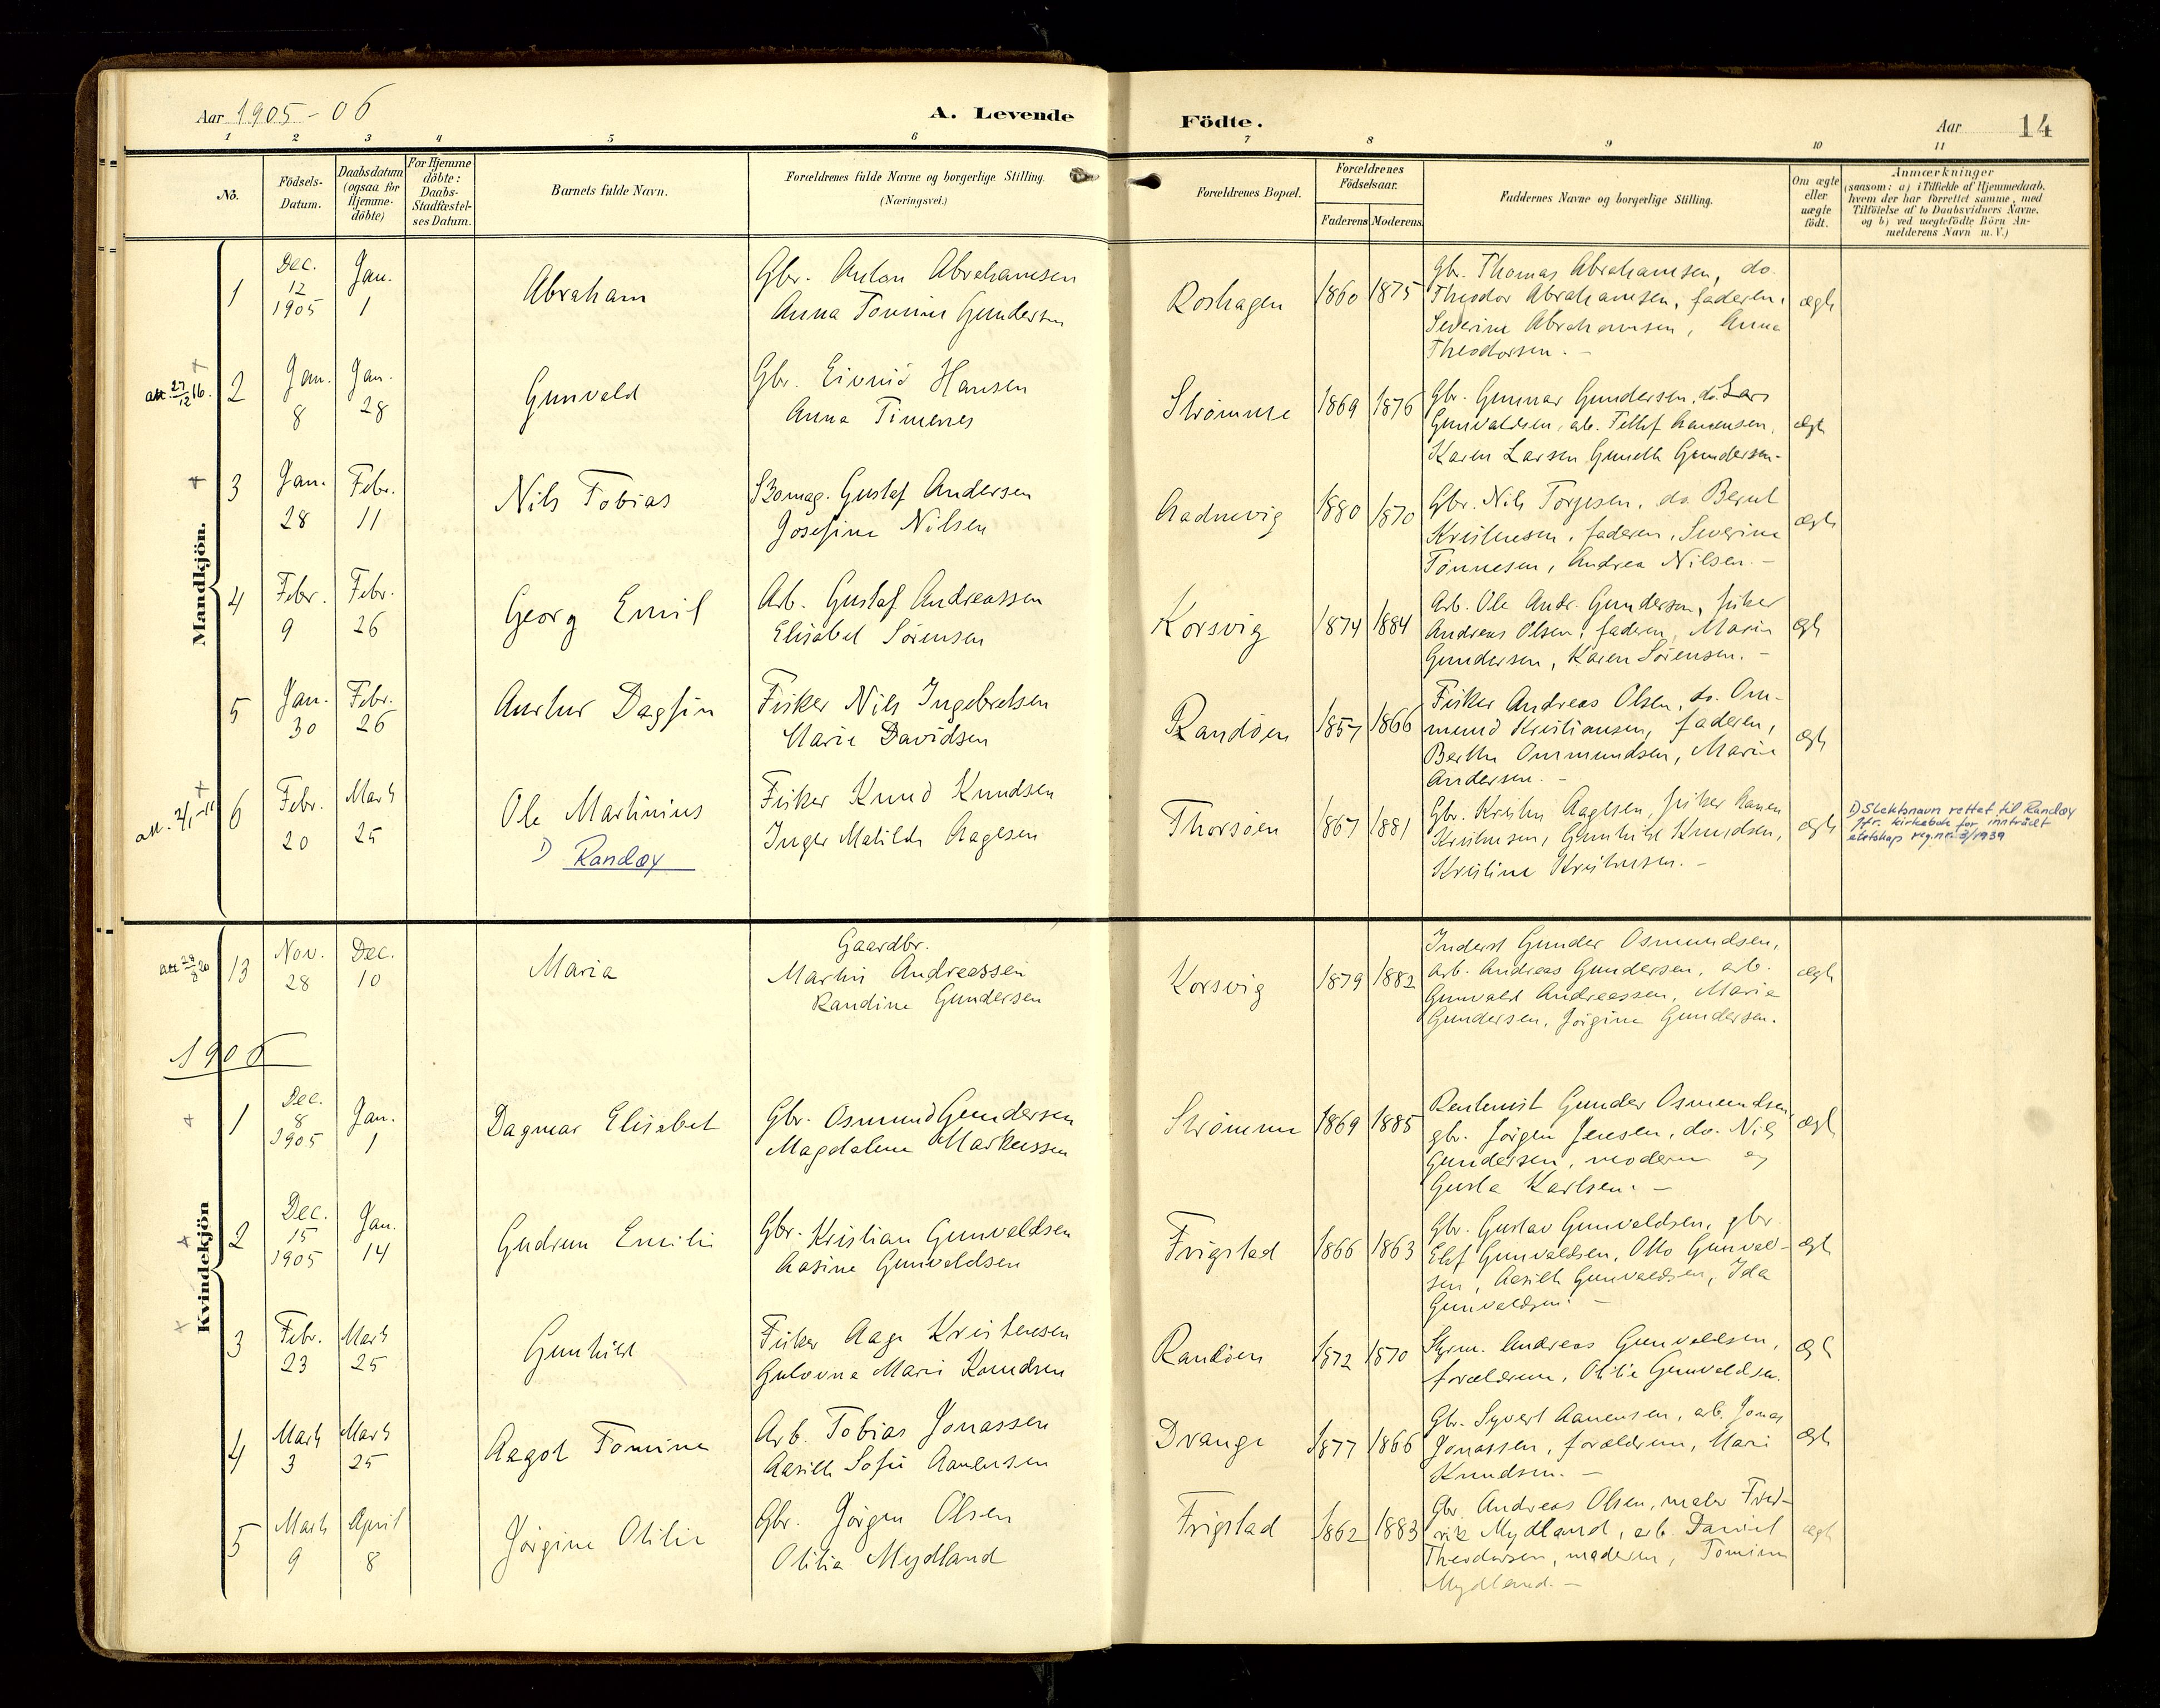 Aar 1905-06
A. Levende
Födte.
Aar 14
1 2 3 4 5 6 7 8 9 10 11
No.
Födsels-
Datum.
Daabsdatum
(ogsaa for
Hjemme-
döbte)
For Hjemme
döbte:
Daabs-
Stadfæstel-
ses Datum.
Barnets fulde Navn.
Forældrenes fulde Navne og borgerlige Stilling.
(Næringsvei.)
Forældrenes Bopæl.
Forældrenes
Födselsaar.
Faderens Moderens
Faddernes Navne og borgerlige Stilling.
Om ægte
eller
uægte
födt.
Anmærkninger
(saasom: a) i Tilfælde af Hjemmedaab,
hvem der har forrettet samme, med
Tilföielse af to Daabsvidners Navne,
og b) ved uægtefödte Börn An-
melderens Navn m. V.)
Mandkjön.
1
Dec.
12
1905
Jan.
1
Abraham
Gbr. Anton Abrahamsen
Anna Tomine Gundersen
Roshagen
1860 1875
Gbr. Thomas Abrahamsen, do.
Theodor Abrahamsen, faderen,
Severine Abrahamsen, Anna
Theodorsen. -
ægte
att. 27/12 16.
2
Jan.
8
Jan.
28
Gunvald
Gbr. Eivind Hansen
Anna Timenes
Strømme
1869 1876
Gbr. Gunnar Gundersen, do. Lars
Gunvaldsen, arb. Tellef Aanensen,
Karen Larsen Guneth Gundersen-
ægte
3
Jan.
28
Febr.
11
Nils Tobias
Gustaf Andersen
Josefine Nilsen
Aadnevig
1880 1870
Gbr. Nils Torjesen, do. Berent
Kristensen, faderen, Severine
Tönnesen, Andrea Nilsen. -
ægte
4
Febr.
9
Febr.
26
Georg Emil
Arb. Gustaf Andreassen
Elisabet Sörensen
Korsvig
1874 1884
Arb. Ole Andr. Gundersen, fisker
Andreas Olsen, faderen, Marie
Gundersen, Karen Sörensen. -
ægte
5
Jan.
30
Febr.
26
Artur Dagfin
Fisker Nils Ingebretsen
Marie Davidsen
Randöen
1857 1866
Fisker Andreas Olsen, do. Om-
mund Kristiansen, faderen,
Berthe Ommundsen, Marie
Andersen. -
ægte
6
Febr.
20
Marts
25
Ole Martinius
1) Randøy
Fisker Knud Knudsen
Inger Matilde Aagesen
Thorsöen
1867 1881
Gbr. Kristen Aagesen, fisker Aanen
Kristensen, Gunhild Knudsen,
Kristine Kristensen. -
ægte
1) Slektsnavn rettet til Randøy
Jfr. kirkebok for inntrådt
ektskap reg.nr. 3/1939
13
Nov.
28
Dec.
10
Maria
Gaardbr.
Martin Andreassen
Randine Gundersen
Korsvig
1879 1882
Inderst Gunder Osmundsen,
arb. Andreas Gundersen, arb.
Gunvald Andreassen, Marie
Gundersen, Jörgine Gundersen.
ægte
1906
Kvindekjön
1
Dec.
8
1905
Jan.
1
Dagmar Elisabet
Gbr. Osmund Gundersen
Magdalene Markussen
Strömme
1869 1885
Rentenist Gunder Osmundsen,
gbr. Jörgen Jensen, do. Nils
Gundersen, moderen og
Gusta Karlsen. -
ægte
2
Dec.
15
1905
Jan.
14
Gudrun Emilie
Gbr. Kristian Gunvaldsen
Aasine Gunvaldsen
Frigstad
1866 1863
Gbr. Gustav Gunvaldsen, gbr.
Elef Gunvaldsen, Otto Gunvald-
sen, Aasille Gunvaldsen, Ida
Gunvaldsen. -
ægte
3
Febr.
23
Marts
25
Gunhild
Fisker Aage Kristensen
Gulovna Marie Knudsen
Randöen
1872 1870
Styrm. Andreas Gunvaldsen,
forældrene, Otilie Gunvaldsen.
ægte
4
Marts
3
Marts
25
Aagot Tomine
Arb. Tobias Jonassen
Aasille Sofie Aanensen
Drange
1877 1866
Gbr. Syvert Aanensen, arb. Jonas
Jonassen, forældrene, Mari
Knudsen. -
ægte
5
Marts
9
April
8
Jörgine Otilie
Gbr. Jörgen Olsen
Otilia Mydland
Frigstad
1862 1883
Gbr. Andreas Olsen, maler Fred-
rik Mydland, arb. Daniel
Theodorsen, moderen, Tomine
Mydland. -
ægte